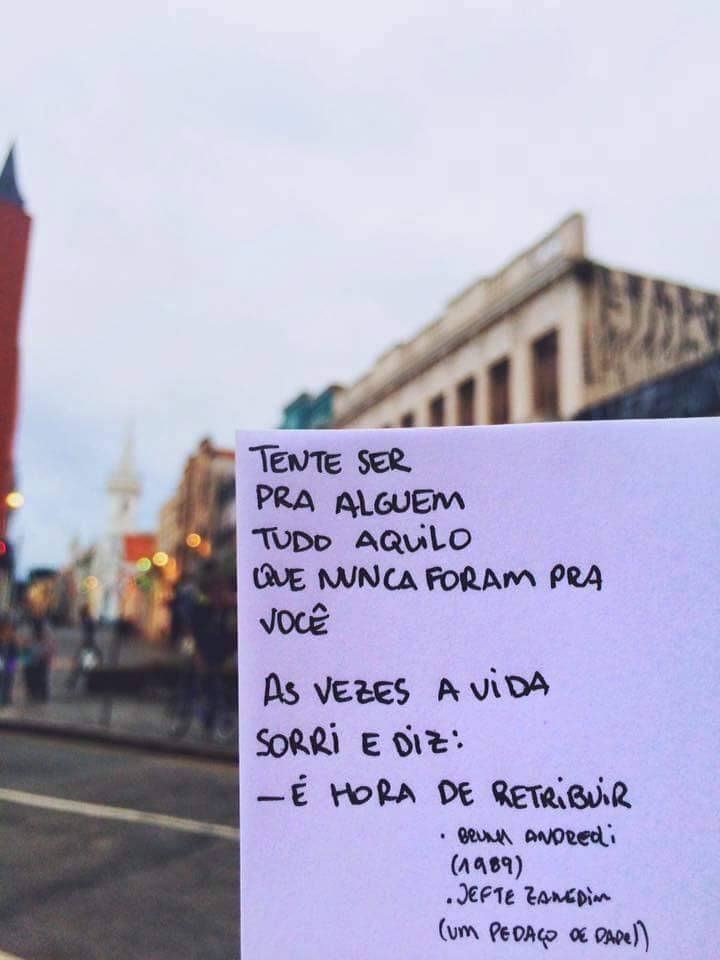 TENTE SER
PRA ALGUEM
TUDO AQUILO
QUE NUNCA FORAM PRA
VOCÊ
AS VEZES A VIDA
SORRI E DIZ:
— É HORA DE RETRIBUIR
• BRUNA ANDREOLI
(1989)
• JEFTE ZANEDIM
(UM PEDAÇO DE PAPEL)